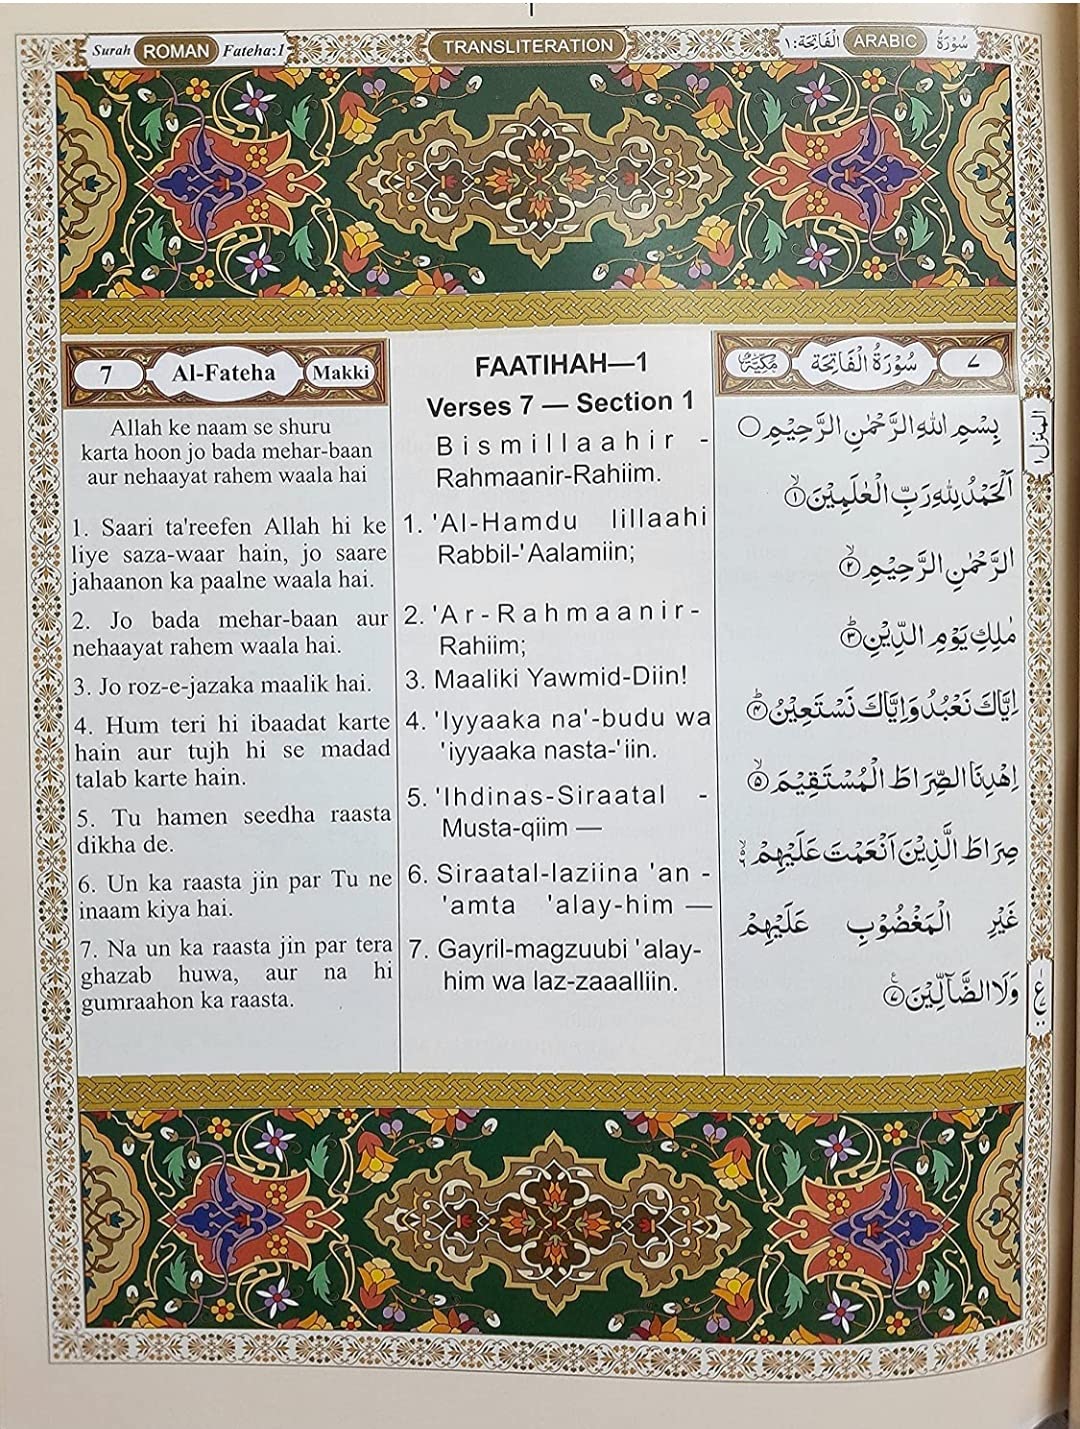 Surah ROMAN Fateha:1
TRANSLITERATION
سُوْرَةُ ARABIC الْفَاتِحَة:١
7 Al-Fateha Makki
Allah ke naam se shuru
karta hoon jo bada mehar-baan
aur nehaayat rahem waala hai
1. Saari ta'reefen Allah hi ke
liye saza-waar hain, jo saare
jahaanon ka paalne waala hai.
2. Jo bada mehar-baan aur
nehaayat rahem waala hai.
3. Jo roz-e-jazaka maalik hai.
4. Hum teri hi ibaadat karte
hain aur tujh hi se madad
talab karte hain.
5. Tu hamen seedha raasta
dikha de.
6. Un ka raasta jin par Tu ne
inaam kiya hai.
7. Na un ka raasta jin par tera
ghazab huwa, aur na hi
gumraahon ka raasta.
FAATIHAH—1
Verses 7 — Section 1
Bismillaahir -
Rahmaanir-Rahiim.
1. 'Al-Hamdu lillaahi
Rabbil-'Aalamiin;
2. 'Ar-Rahmaanir-
Rahiim;
3. Maaliki Yawmid-Diin!
4. 'Iyyaaka na'-budu wa
'iyyaaka nasta-'iin.
5. 'Ihdinas-Siraatal -
Musta-qiim —
6. Siraatal-laziina 'an -
'amta 'alay-him —
7. Gayril-magzuubi 'alay-
him wa laz-zaaalliin.
٧ سُوْرَةُ الْفَاتِحَة مَكِّيَّة
بِسْمِ اللهِ الرَّحْمٰنِ الرَّحِيْمِ ○
اَلْحَمْدُ لِلّٰهِ رَبِّ الْعٰلَمِيْنَ ۙ ١
الرَّحْمٰنِ الرَّحِيْمِ ۙ ٢
مٰلِكِ يَوْمِ الدِّيْنِ ؕ ٣
اِيَّاكَ نَعْبُدُ وَاِيَّاكَ نَسْتَعِيْنُ ؕ ۴
اِهْدِنَا الصِّرَاطَ الْمُسْتَقِيْمَ ۙ ۵
صِرَاطَ الَّذِيْنَ اَنْعَمْتَ عَلَيْهِمْ
غَيْرِ الْمَغْضُوْبِ عَلَيْهِمْ
وَلَا الضَّآلِّيْنَ ٧
المنزل ١
ع